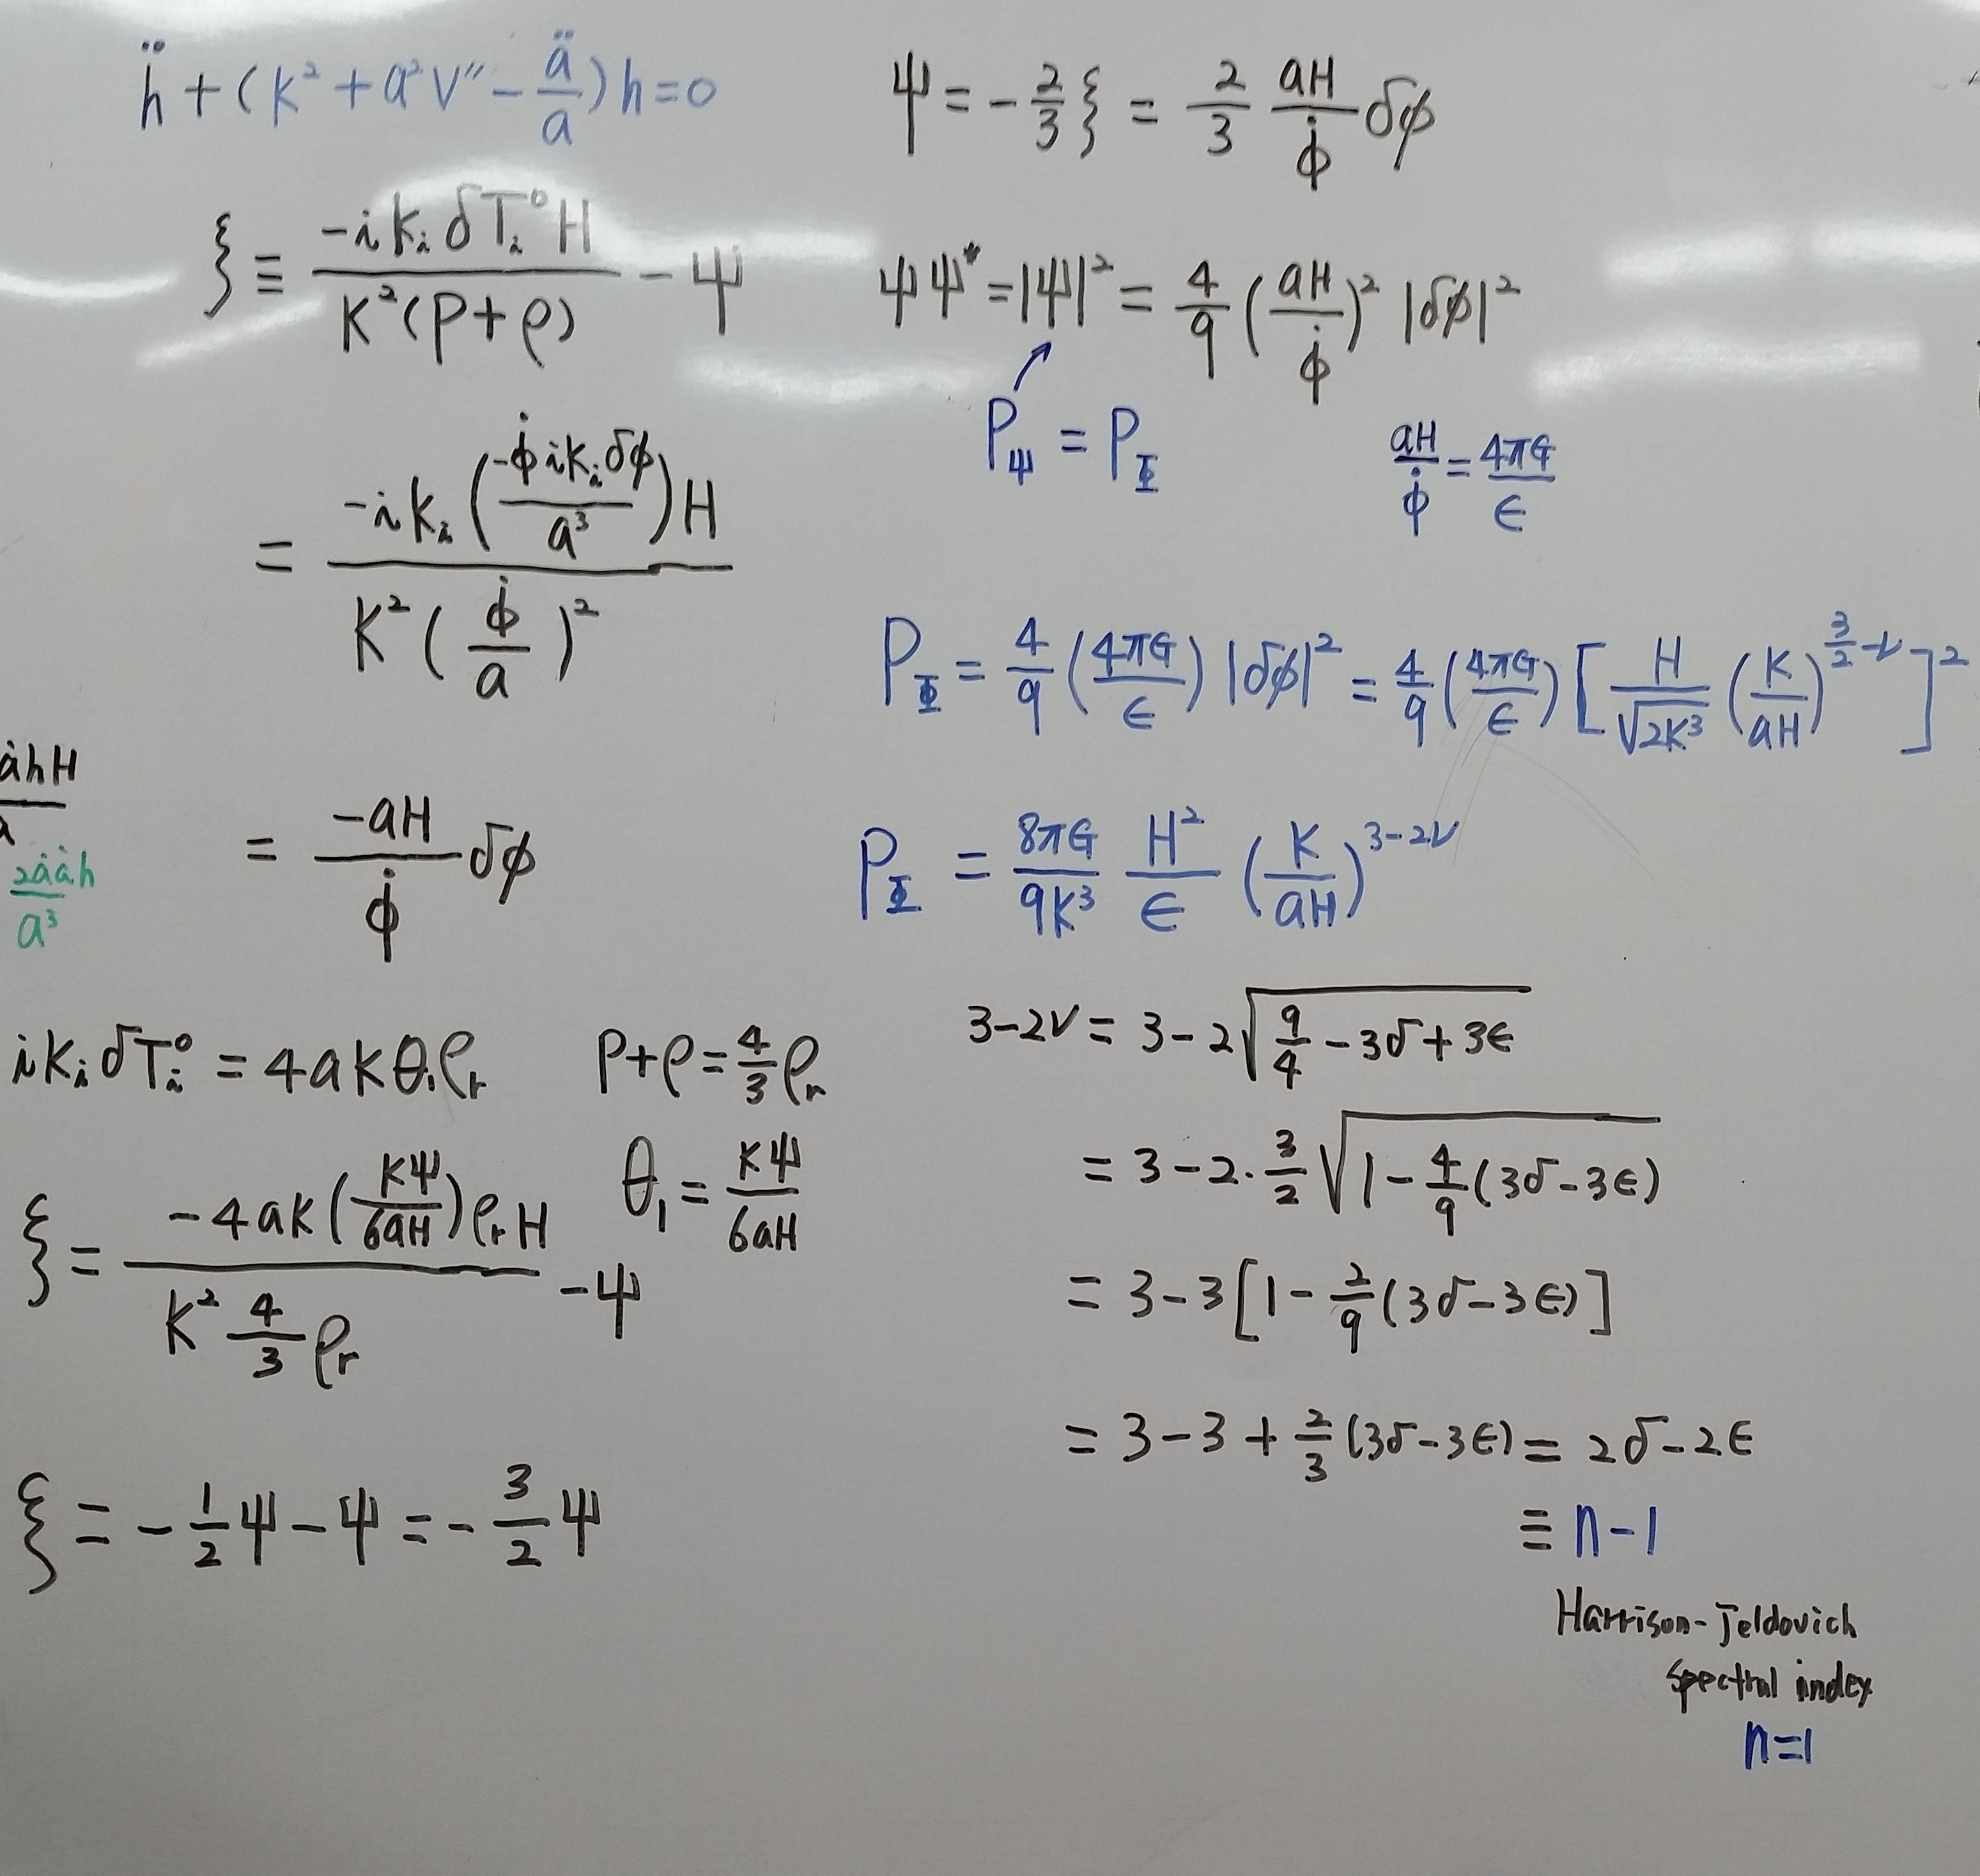 ḧ + (k² + a²V″ − ä/a)h = 0
ξ ≡ (−ikᵢ δTᵢ⁰ H)/(k²(P+ρ)) − Ψ
= (−ikᵢ((−φ̇ ikᵢ δφ)/a³)H)/(k²(φ̇/a)²)
= (−aH/φ̇) δφ
ȧhH
2ȧȧh/a³
ikᵢ δTᵢ⁰ = 4akθ₁ρᵣ P+ρ = (4/3)ρᵣ
ξ = (−4ak(kΨ/6aH)ρᵣH)/(k² (4/3) ρᵣ) − Ψ θ₁ = kΨ/6aH
ξ = −(1/2)Ψ − Ψ = −(3/2)Ψ
Ψ = −(2/3)ξ = (2/3)(aH/φ̇)δφ
ΨΨ* = |Ψ|² = (4/9)(aH/φ̇)² |δφ|²
P_Ψ = P_Φ aH/φ̇ = 4πG/ϵ
P_Φ = (4/9)(4πG/ϵ)|δφ|² = (4/9)(4πG/ϵ)[(H/√(2k³))(k/aH)^(3/2−ν)]²
P_Φ = (8πG/9k³)(H²/ϵ)(k/aH)^(3−2ν)
3−2ν = 3−2√(9/4 − 3δ + 3ϵ)
= 3−2·(3/2)√(1 − (4/9)(3δ−3ϵ))
= 3−3[1 − (2/9)(3δ−3ϵ)]
= 3−3 + (2/3)(3δ−3ϵ) = 2δ−2ϵ
≡ n−1
Harrison-Zeldovich
spectral index
n=1